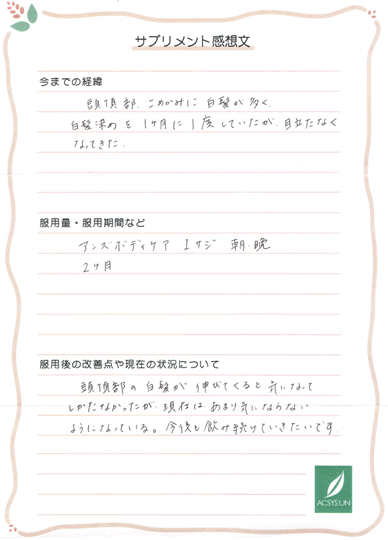 サプリメント感想文
今までの経緯
頭頂部、こめかみに白髪が多く、
白髪染めを1ヶ月に1度していたが、目立たなく
なってきた。
服用量・服用期間など
アンズボディケア 1サジ 朝・晩
2ヶ月
服用後の改善点や現在の状況について
頭頂部の白髪が伸びてくると気になって
しかたなかったが、現在はあまり気にならない
ようになっている。今後も飲み続けていきたいです。
ACSYSUN